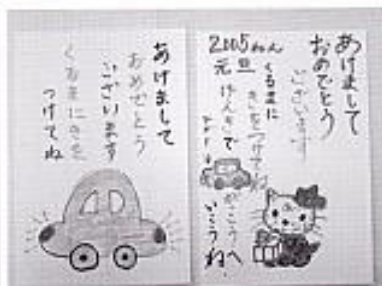 あけまして
おめでとう
ございます
くるまにきを
つけてね
あけまして
おめでとう
ございます
2005ねん
元旦
くるまに
きをつけてね
げんきで
がっこうへ
いこうね!